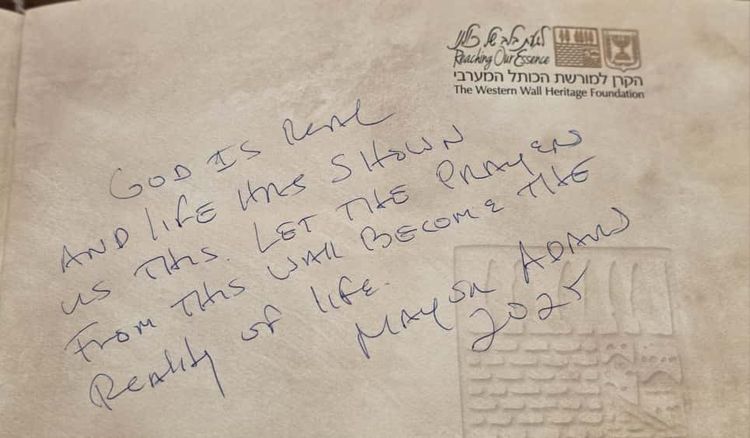 לגעת בלב של כולנו
Reaching Our Essence
הקרן למורשת הכותל המערבי
The Western Wall Heritage Foundation
GOD IS REAL
AND LIFE HAS SHOWN
US THIS. LET THE PRAYER
FROM THIS WALL BECOME THE
Reality of LIFE.
MAYOR ADAMS
2025